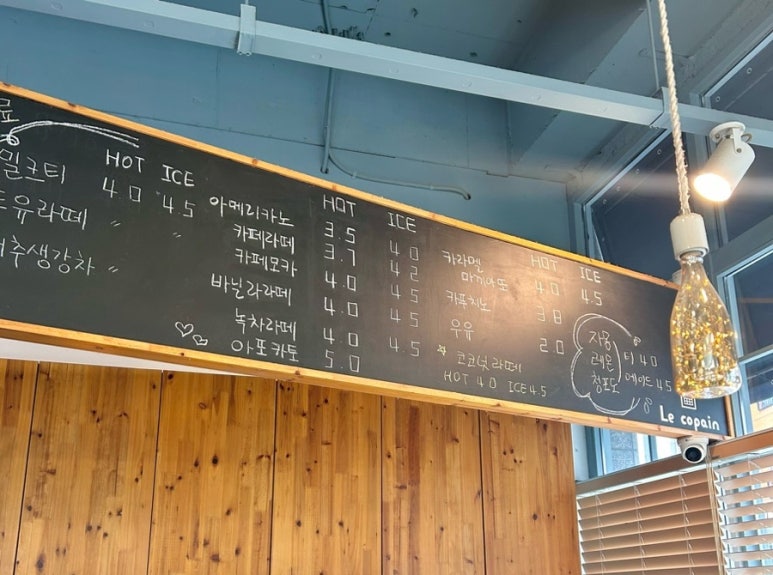 료
밀크티 HOT 4.0 ICE 4.5
두유라떼 〃 〃
대추생강차 〃
HOT ICE
아메리카노 3.5 4.0
카페라떼 3.7 4.2
카페모카 4.0 4.5
바닐라라떼 4.0 4.5
녹차라떼 4.0 4.5
아포카토 5.0
HOT ICE
카라멜
마끼아또 4.0 4.5
카푸치노 3.8
우유 2.0
☆ 코코넛라떼
HOT 4.0 ICE 4.5
자몽
레몬
청포도
티 4.0
에이드 4.5
Le copain